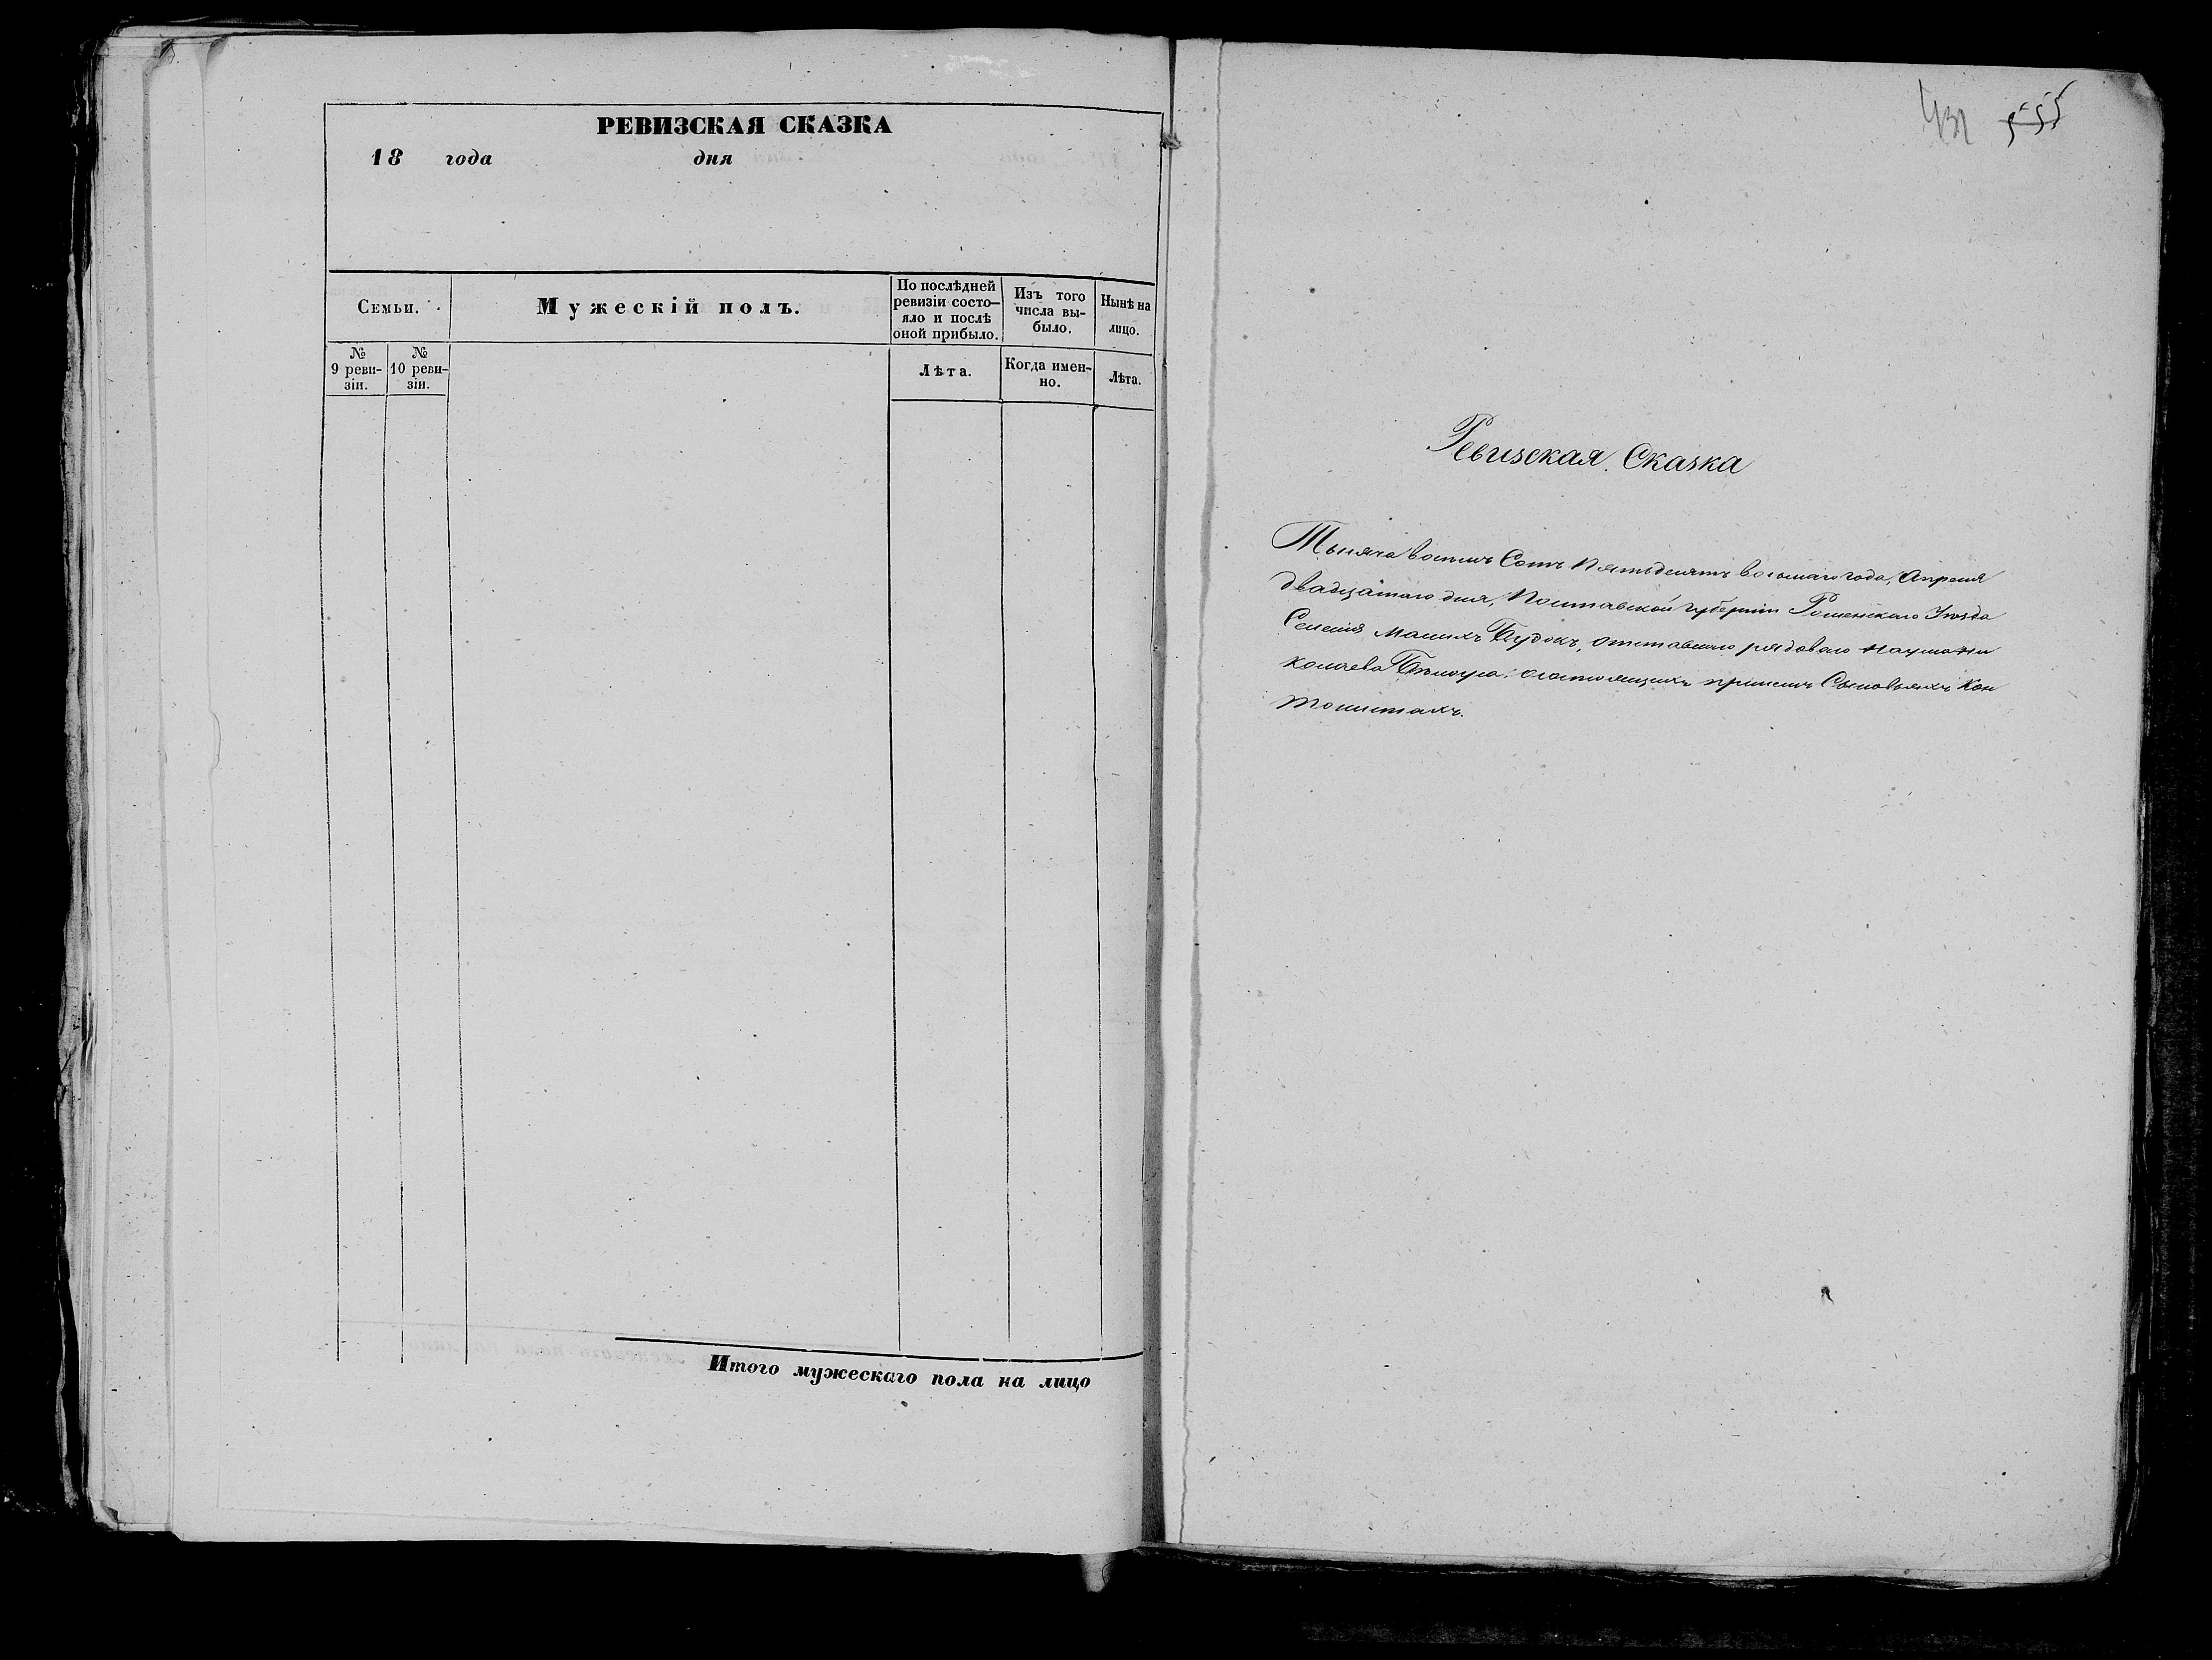 РЕВИЗСКАЯ СКАЗКА
18 года дня
Семьи.
Мужескій полъ.
По послѣдней
ревизіи состо-
яло и послѣ
оной прибыло.
Изъ того
числа вы-
было.
Нынѣ на
лицо.
№
9 реви-
зіи.
№
10 реви-
зіи.
Лѣта.
Когда имен-
но.
Лѣта.
Итого мужескаго пола на лицо
555
Ревизская Сказка
Тысяча восемь Сотъ Пятьдесятъ восьмаго года, Апреля
двадцатаго дня, Полтавской губерніи Роменскаго Уезда
Селенія Малихъ Будокъ, отставнаго рядоваго Наума Ни
колаева состоящихъ при немъ Сыновьяхъ Кан
тонистахъ.